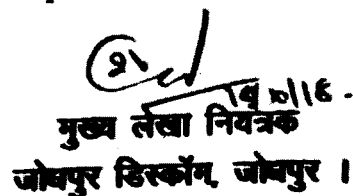 मुख्य लेखा नियंत्रक
जोधपुर डिस्कॉम, जोधपुर ।